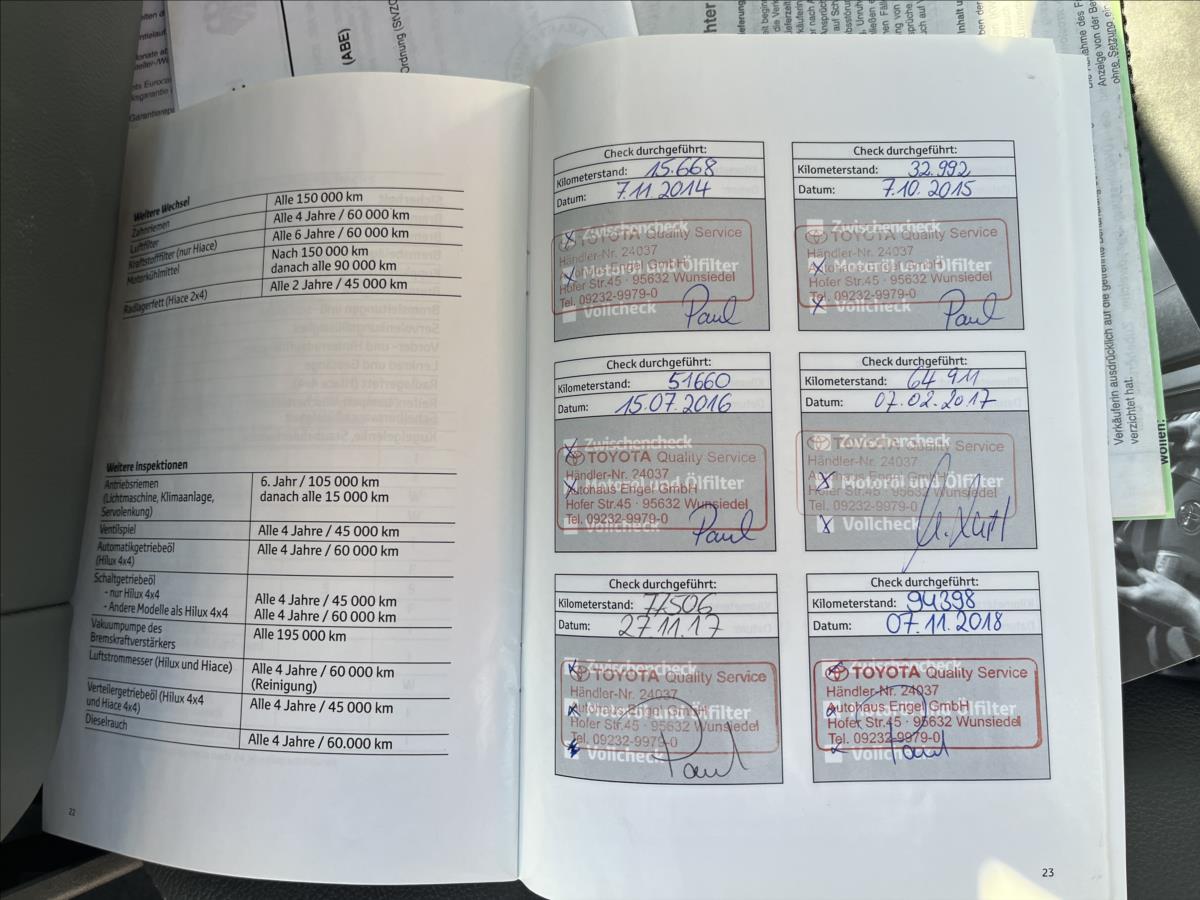 (ABE)
Ordnung (SN/ZO
Weitere Wechsel
Zahnriemen Alle 150 000 km
Luftfilter Alle 4 Jahre / 60 000 km
Kraftstofffilter (nur Hiace) Alle 6 Jahre / 60 000 km
Motorkühlmittel Nach 150 000 km
danach alle 90 000 km
Radlagerfett (Hiace 2x4) Alle 2 Jahre / 45 000 km
Weitere Inspektionen
Antriebsriemen 6. Jahr / 105 000 km
(Lichtmaschine, Klimaanlage, danach alle 15 000 km
Servolenkung)
Ventilspiel Alle 4 Jahre / 45 000 km
Automatikgetriebeöl Alle 4 Jahre / 60 000 km
(Hilux 4x4)
Schaltgetriebeöl
- nur Hilux 4x4 Alle 4 Jahre / 45 000 km
- Andere Modelle als Hilux 4x4 Alle 4 Jahre / 60 000 km
Vakuumpumpe des Alle 195 000 km
Bremskraftverstärkers
Luftstrommesser (Hilux und Hiace) Alle 4 Jahre / 60 000 km
(Reinigung)
Verteilergetriebeöl (Hilux 4x4 Alle 4 Jahre / 45 000 km
und Hiace 4x4)
Dieselrauch Alle 4 Jahre / 60.000 km
22
Check durchgeführt:
Kilometerstand: 15.668
Datum: 7.11.2014
Zwischencheck
TOYOTA Quality Service
Händler-Nr. 24037
Motoröl und Ölfilter
Autohaus Engel GmbH
Hofer Str.45 · 95632 Wunsiedel
Tel. 09232-9979-0
Vollcheck
Paul
Check durchgeführt:
Kilometerstand: 32.992
Datum: 7.10.2015
Zwischencheck
TOYOTA Quality Service
Händler-Nr. 24037
Motoröl und Ölfilter
Autohaus Engel GmbH
Hofer Str.45 · 95632 Wunsiedel
Tel. 09232-9979-0
Vollcheck
Paul
Check durchgeführt:
Kilometerstand: 51660
Datum: 15.07.2016
Zwischencheck
TOYOTA Quality Service
Händler-Nr. 24037
Motoröl und Ölfilter
Autohaus Engel GmbH
Hofer Str.45 · 95632 Wunsiedel
Tel. 09232-9979-0
Paul
Check durchgeführt:
Kilometerstand: 64 911
Datum: 07.02.2017
Zwischencheck
TOYOTA Quality Service
Händler-Nr. 24037
Motoröl und Ölfilter
Autohaus Engel GmbH
Hofer Str.45 · 95632 Wunsiedel
Tel. 09232-9979-0
Vollcheck
Check durchgeführt:
Kilometerstand: 77506
Datum: 27.11.17
Zwischencheck
TOYOTA Quality Service
Händler-Nr. 24037
Motoröl und Ölfilter
Autohaus Engel GmbH
Hofer Str.45 · 95632 Wunsiedel
Tel. 09232-9979-0
Vollcheck
Paul
Check durchgeführt:
Kilometerstand: 94398
Datum: 07.11.2018
Zwischencheck
TOYOTA Quality Service
Händler-Nr. 24037
Motoröl und Ölfilter
Autohaus Engel GmbH
Hofer Str.45 · 95632 Wunsiedel
Tel. 09232-9979-0
Vollcheck
Paul
23
verzichtet hat.
wollen.